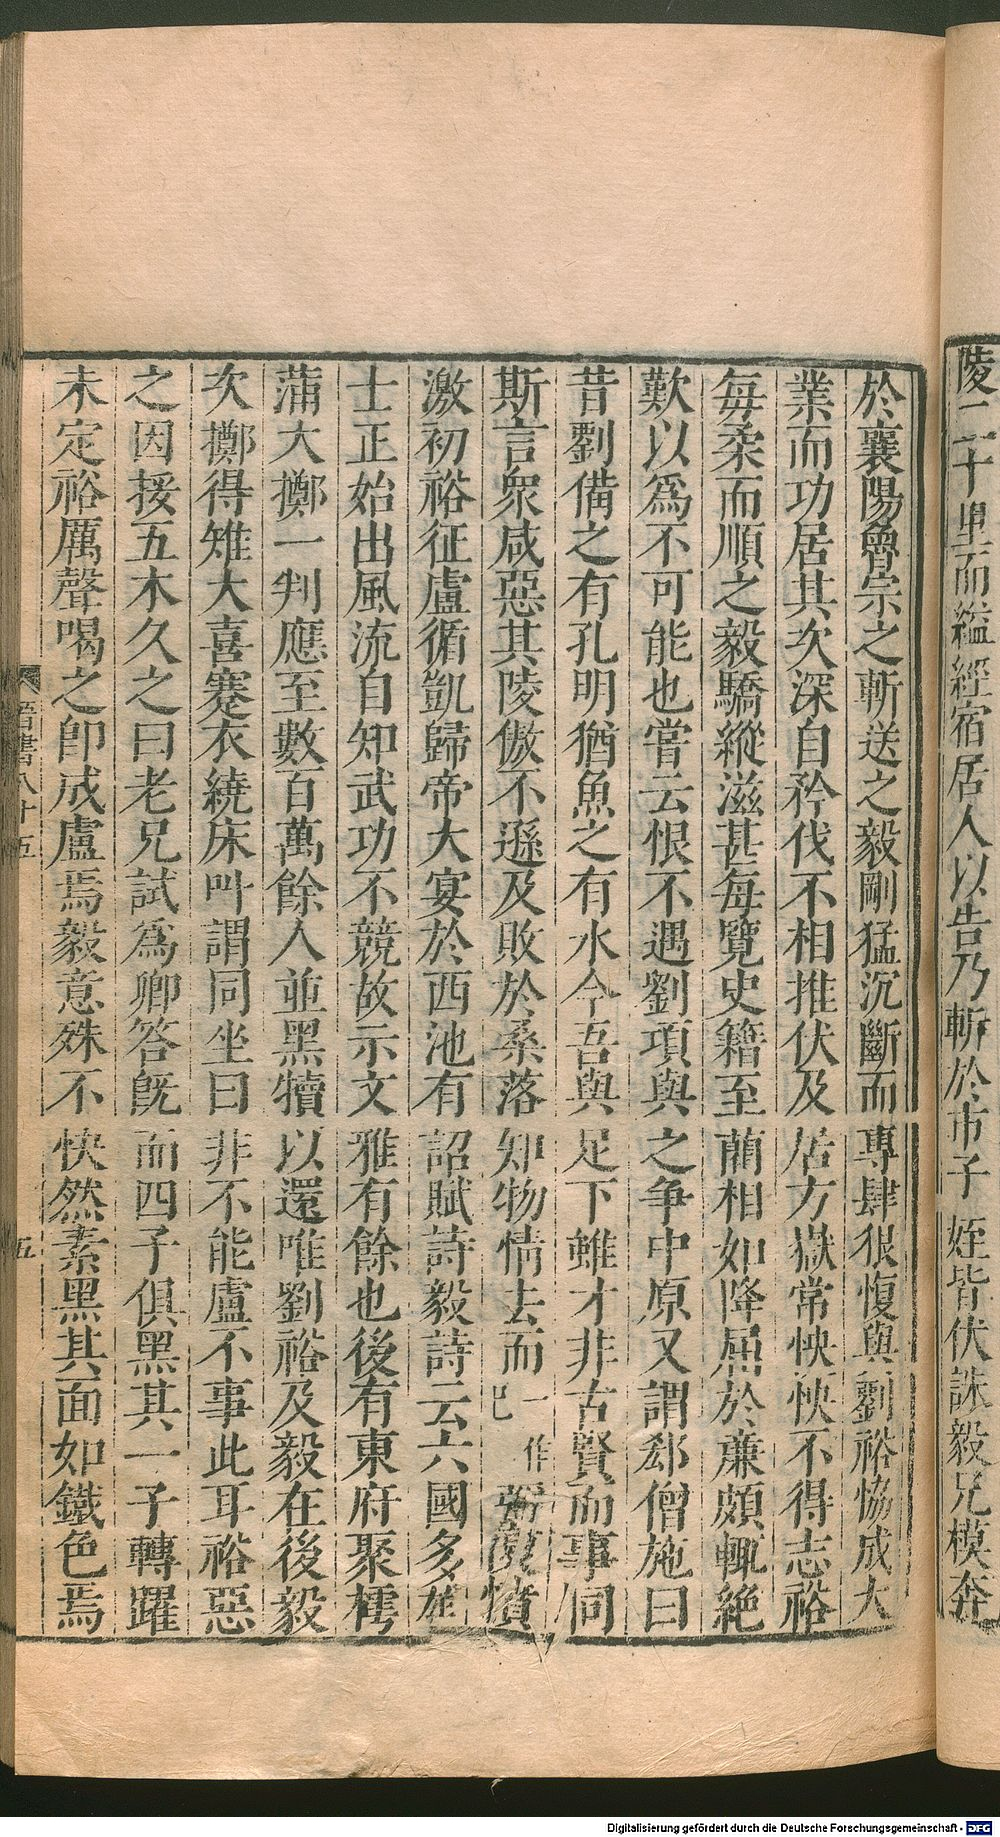 陵二十里而縊經宿居人以告乃斬於市子姪皆伏誅毅兄模奔
於襄陽魯宗之斬送之毅剛猛沉斷而專肆很愎與劉裕協成大
業而功居其次深自矜伐不相推伏及居方嶽常怏怏不得志裕
每柔而順之毅驕縱滋甚每覽史籍至藺相如降屈於亷頗輒絶
歎以爲不可能也嘗云恨不遇劉項與之爭中原又謂郄僧施曰
昔劉備之有孔明猶魚之有水今吾與足下雖才非古賢而事同
斯言衆咸惡其陵傲不遜及敗於桑落知物情去而一作已彌復憤
激初裕征盧循凱歸帝大宴於西池有詔賦詩毅詩云六國多雄
士正始出風流自知武功不競故示文雅有餘也後有東府聚樗
蒲大擲一判應至數百萬餘人並黑犢以還唯劉裕及毅在後毅
次擲得雉大喜褰衣繞床叫謂同坐曰非不能盧不事此耳裕惡
之因挼五木久之曰老兄試爲卿答旣而四子俱黑其一子轉躍
未定裕厲聲喝之卽成盧焉毅意殊不快然素黑其面如鐵色焉
晉書八十五
五
Digitalisierung gefördert durch die Deutsche Forschungsgemeinschaft - DFG